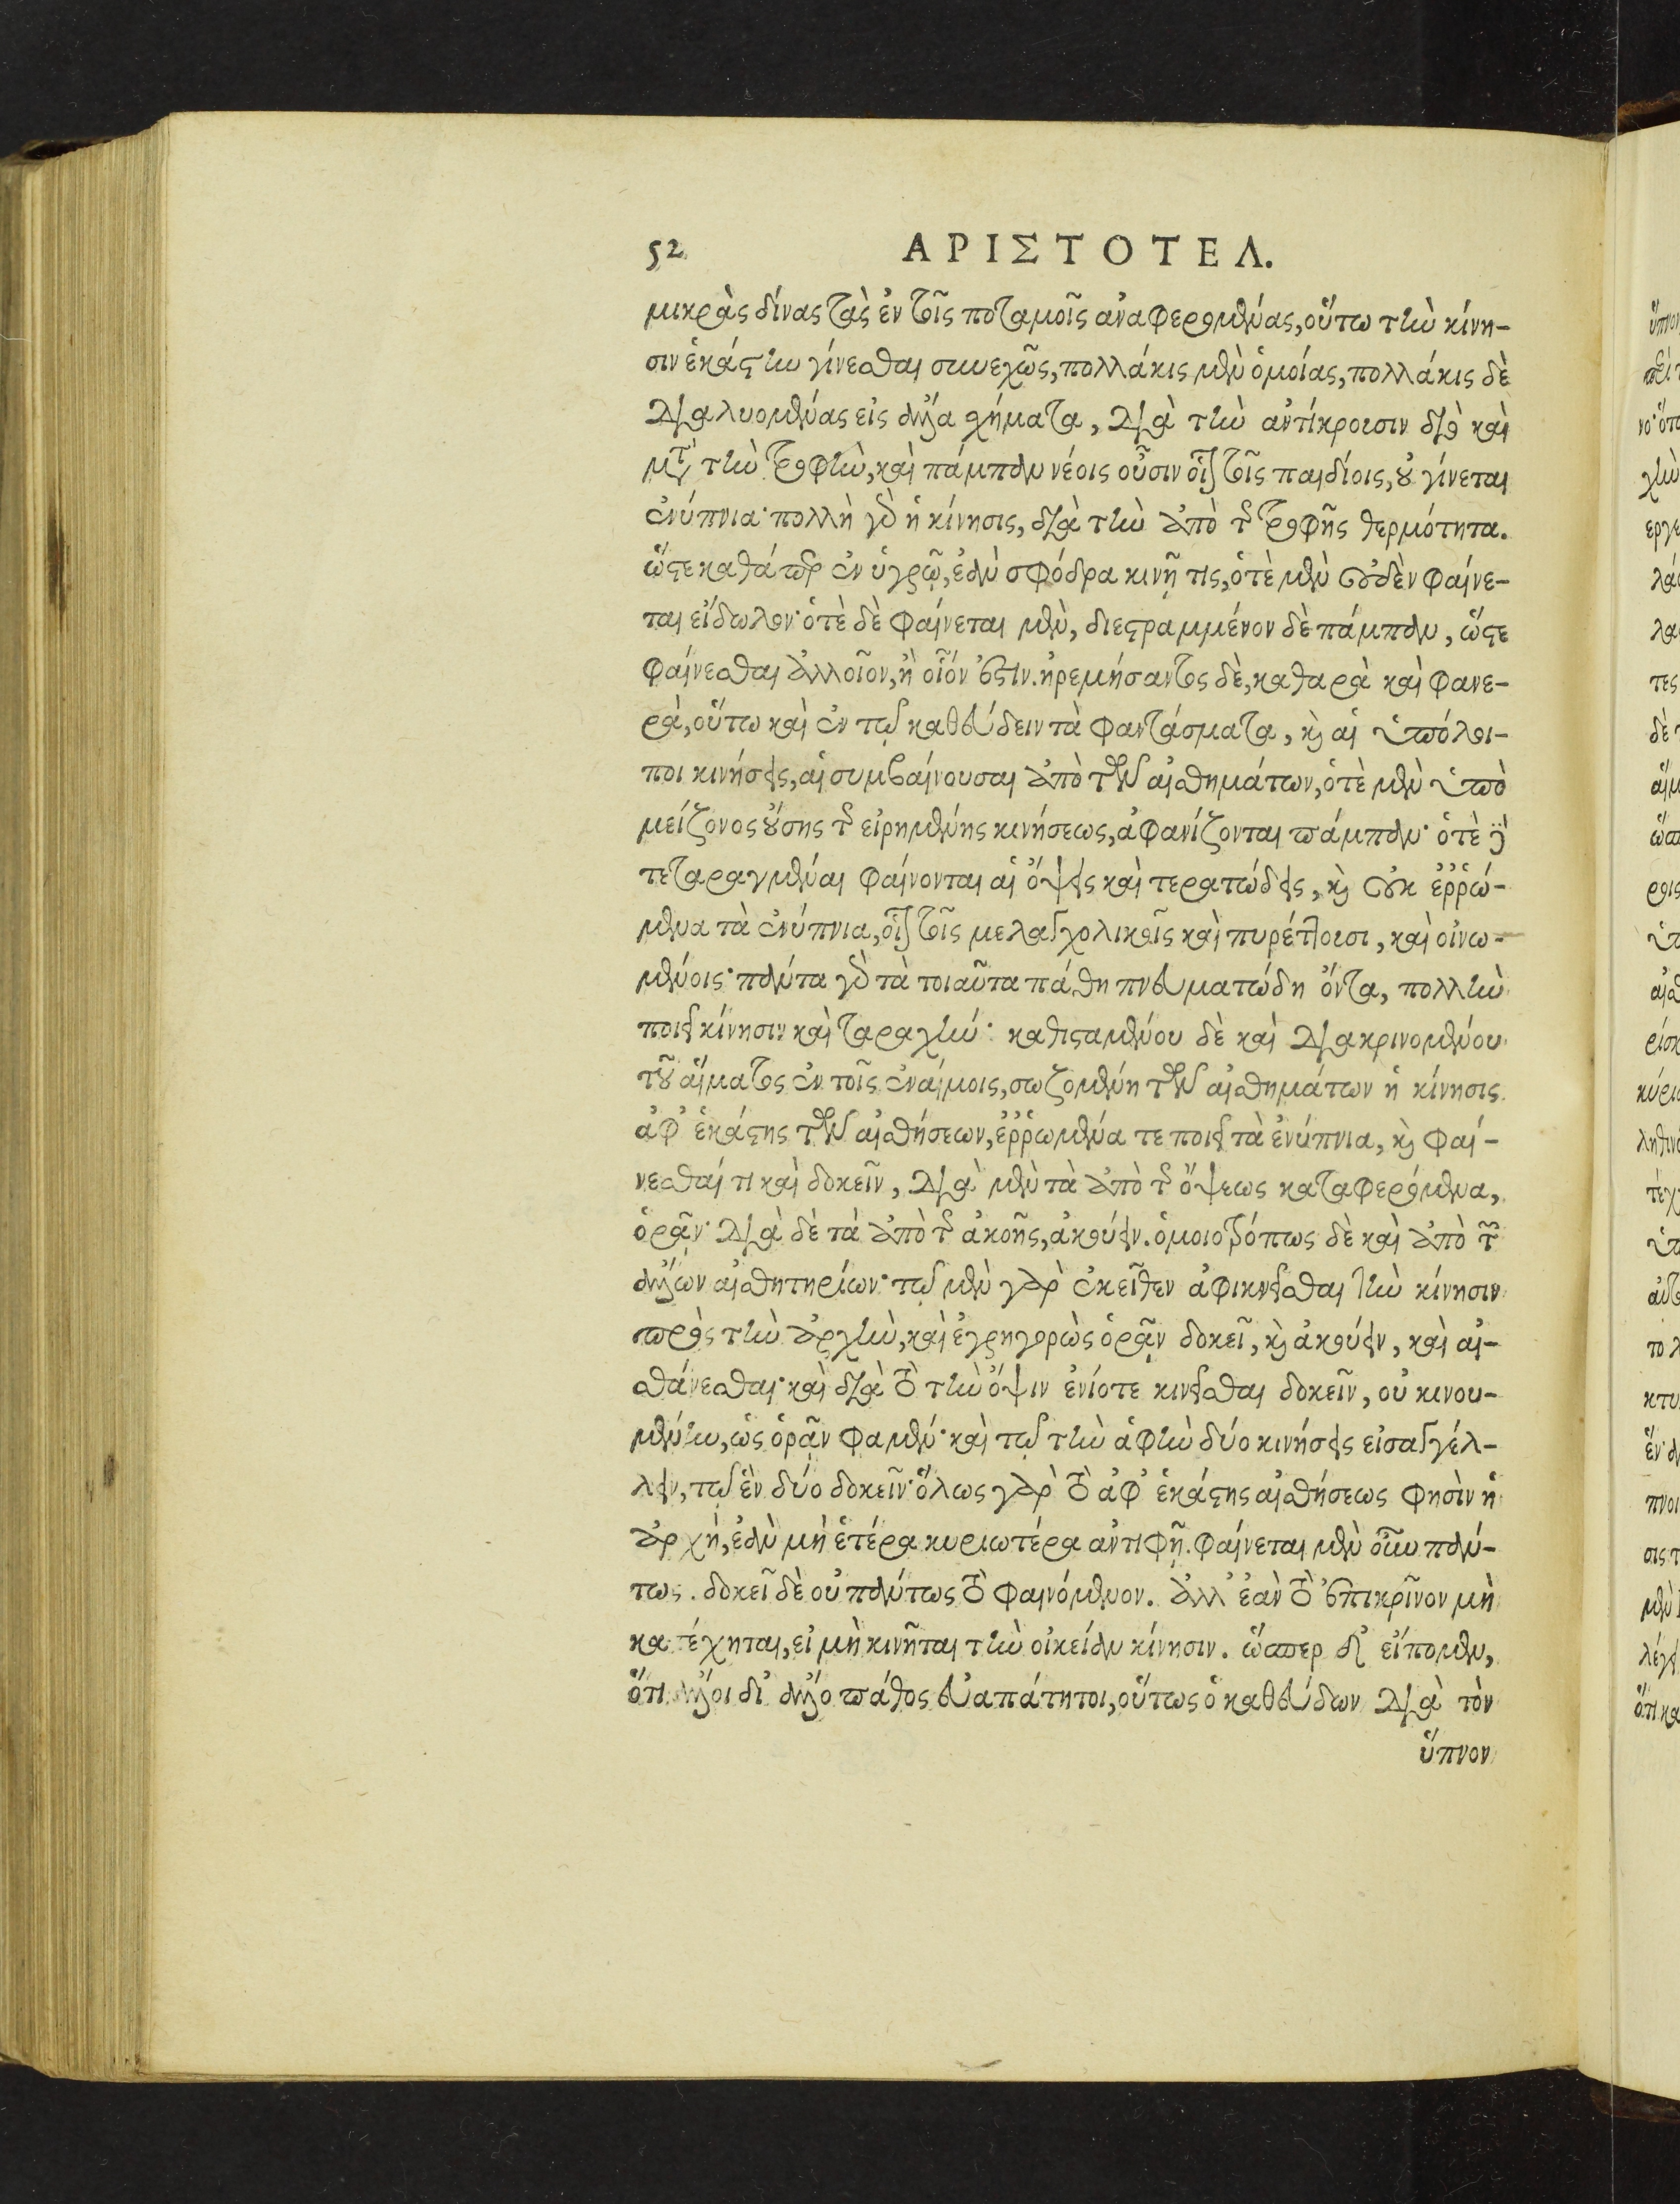 52 ΑΡΙΣΤΟΤΕΛ.
μικρὰς δίνας τὰς ἐν τοῖς ποταμοῖς ἀναφερομένας, οὕτω τὴν κίνη-
σιν ἑκάστην γίνεσθαι συνεχῶς, πολλάκις μὲν ὁμοίας, πολλάκις δὲ
διαλυομένας εἰς ἄλλα σχήματα, διὰ τὴν ἀντίκρουσιν διὸ καὶ
μετὰ τὴν τροφὴν, καὶ πάμπαν νέοις οὖσιν οἷον τοῖς παιδίοις, οὐ γίνεται
ἐνύπνια· πολλὴ γὰρ ἡ κίνησις, διὰ τὴν ἀπὸ τῆς τροφῆς θερμότητα.
ὥστε καθάπερ ἐν ὑγρῷ, ἐὰν σφόδρα κινῇ τις, ὁτὲ μὲν οὐδὲν φαίνε-
ται εἴδωλον· ὁτὲ δὲ φαίνεται μὲν, διεστραμμένον δὲ πάμπαν, ὥστε
φαίνεσθαι ἀλλοῖον, ἢ οἷόν ἐστιν. ἠρεμήσαντος δὲ, καθαρὰ καὶ φανε-
ρὰ, οὕτω καὶ ἐν τῷ καθεύδειν τὰ φαντάσματα, καὶ αἱ ὑπόλοι-
ποι κινήσεις, αἱ συμβαίνουσαι ἀπὸ τῶν αἰσθημάτων, ὁτὲ μὲν ὑπὸ
μείζονος οὔσης τῆς εἰρημένης κινήσεως, ἀφανίζονται πάμπαν· ὁτὲ δὲ
τεταραγμέναι φαίνονται αἱ ὄψεις καὶ τερατώδεις, καὶ οὐκ ἐῤῥώ-
μενα τὰ ἐνύπνια, οἷον τοῖς μελαγχολικοῖς καὶ πυρέττουσι, καὶ οἰνω-
μένοις· πάντα γὰρ τὰ τοιαῦτα πάθη πνευματώδη ὄντα, πολλὴν
ποιεῖ κίνησιν καὶ ταραχήν· καθισταμένου δὲ καὶ διακρινομένου
τοῦ αἵματος ἐν τοῖς ἐναίμοις, σωζομένη τῶν αἰσθημάτων ἡ κίνησις
ἀφ' ἑκάστης τῶν αἰσθήσεων, ἐῤῥωμένα τε ποιεῖ τὰ ἐνύπνια, καὶ φαί-
νεσθαί τι καὶ δοκεῖν, διὰ μὲν τὰ ἀπὸ τῆς ὄψεως καταφερόμενα,
ὁρᾷν· διὰ δὲ τὰ ἀπὸ τῆς ἀκοῆς, ἀκούειν. ὁμοιοτρόπως δὲ καὶ ἀπὸ τῶν
ἄλλων αἰσθητηρίων· τῷ μὲν γὰρ ἐκεῖθεν ἀφικνεῖσθαι τὴν κίνησιν
πρὸς τὴν ἀρχὴν, καὶ ἐγρηγορὼς ὁρᾷν δοκεῖ, καὶ ἀκούειν, καὶ αἰ-
σθάνεσθαι· καὶ διὰ τὸ τὴν ὄψιν ἐνίοτε κινεῖσθαι δοκεῖν, οὐ κινου-
μένην, ὡς ὁρᾷν φαμέν· καὶ τῷ τὴν ἁφὴν δύο κινήσεις εἰσαγγέλ-
λειν, τῷ ἓν δύο δοκεῖν· ὅλως γὰρ τὸ ἀφ' ἑκάστης αἰσθήσεως φησὶν ἡ
ἀρχή, ἐὰν μὴ ἑτέρα κυριωτέρα ἀντιφῇ. φαίνεται μὲν οὖν πάν-
τως. δοκεῖ δὲ οὐ πάντως τὸ φαινόμενον. ἀλλ' ἐὰν τὸ ἐπικρῖνον μὴ
κατέχηται, εἰ μὴ κινῆται τὴν οἰκείαν κίνησιν. ὥσπερ δ' εἴπομεν,
ὅτι ἄλλοι δι' ἄλλο πάθος εὐαπάτητοι, οὕτως ὁ καθεύδων διὰ τὸν
ὕπνον